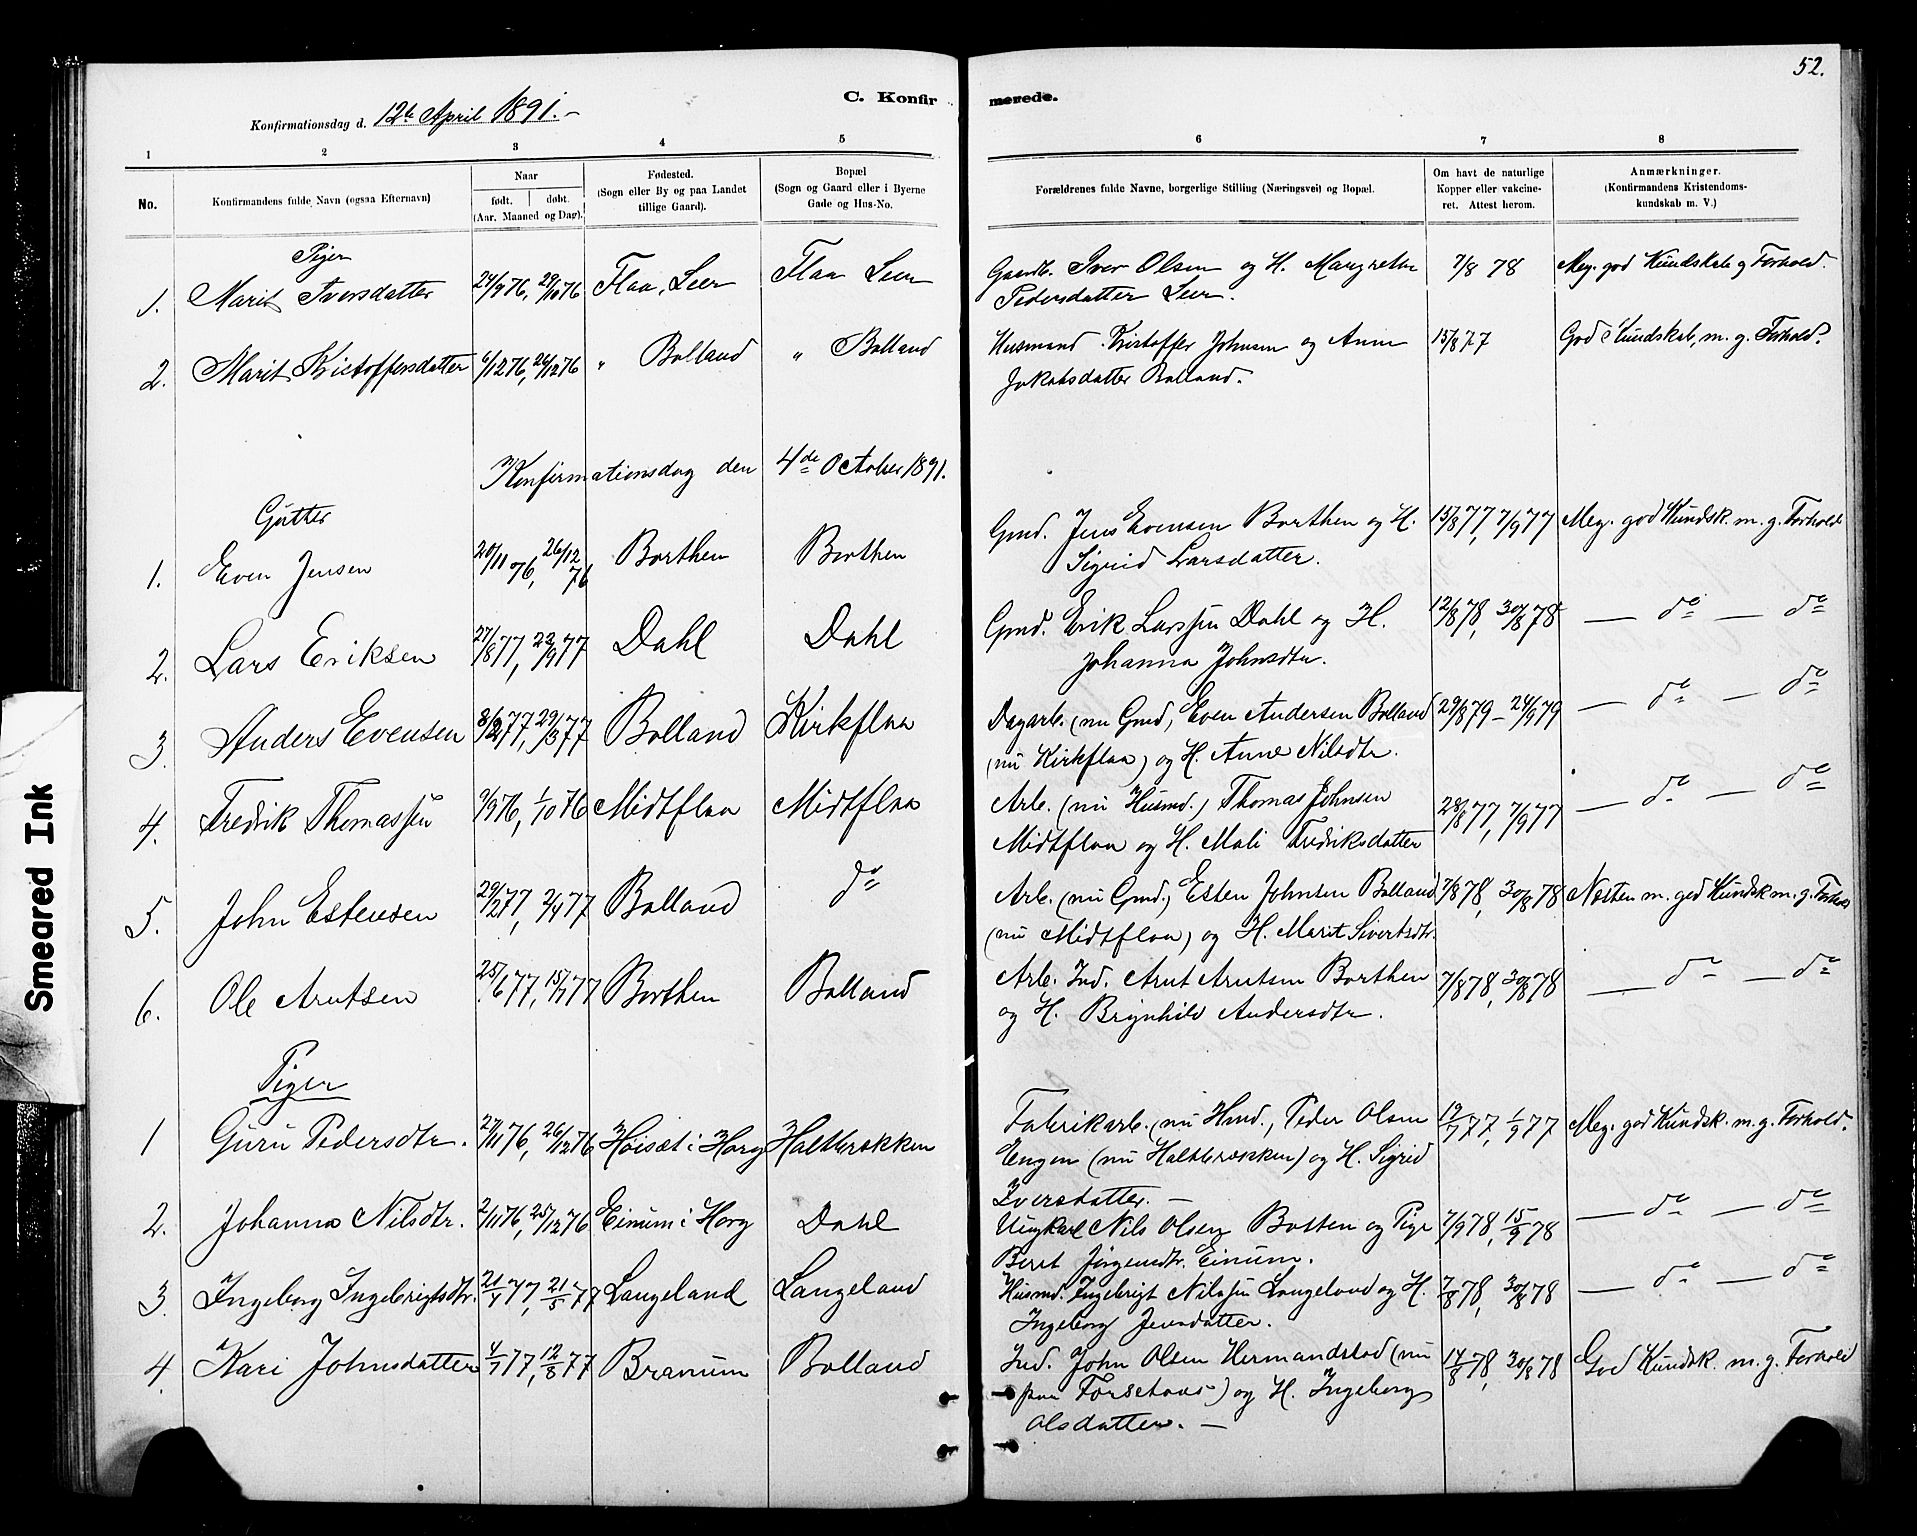 52.
C. Konfirmerede.
Konfirmationsdag d. 12te April 1891.-
1 2 3 4 5 6 7 8
No.
Konfirmandens fulde Navn (ogsaa Efternavn)
Naar
født. døbt.
(Aar. Maaned og Dag).
Fødested.
(Sogn eller By og paa Landet
tillige Gaard).
Bopæl
(Sogn og Gaard eller i Byerne
Gade og Hus-No.
Forældrenes fulde Navne, borgerlige Stilling (Næringsvei) og Bopæl.
Om havt de naturlige
Kopper eller vakcine-
ret. Attest herom.
Anmærkninger.
(Konfirmandens Kristendoms-
kundskab m. V.)
Piger
1. Marit Iversdatter 24/9 76, 29/10 76 Flaa, Leer Flaa Leer Gaardb. Iver Olsen og H. Margrethe 7/8 78 Meg. god Kundskab g Forhold.
Pedersdatter Leer.
2. Marit Kristoffersdatter 6/12 76, 26/12 76 " Bolland " Bolland Husmand Kristoffer Johnsen og Anne 15/8 77 God Kundskab, m. g. Forhold.
Jakobsdatter Bolland.
Konfirmationsdag den 4de October 1891.
Gutter
1. Even Jensen 20/11 76, 26/12 76 Borthen Borthen Gmd. Jens Evensen Borthen og H. 15/8 77, 7/9 77 Meg. god Kundsk. m. g. Forhold
Sigrid Larsdatter.
2. Lars Eriksen 27/8 77, 23/9 77 Dahl Dahl Gmd. Erik Larssen Dahl og H. 12/8 78, 30/8 78 — do — do
Johanna Johnsdtr.
3. Anders Evensen 8/2 77, 29/3 77 Bolland Kirkflaa Dagarb. (nu Gmd, Even Andersen Bolland 29/8 79 - 24/9 79 — do — do
(nu Kirkflaa) og H. Anne Nilsdtr.
4. Fredrik Thomassen 9/9 76, 1/10 76 Midtflaa Midtflaa Arb. (nu Husmd.) Thomas Johnsen 28/8 77, 7/9 77 — do — do
Midtflaa og H. Mali Fredriksdatter
5. John Estensen 20/2 77, 2/4 77 Bolland do Arb. (nu Gmd.) Esten Johnsen Bolland 7/8 78, 30/8 78 Næsten m. god Kundsk m. g. Forhold
(nu Midtflaa) og H. Marit Sivertsdtr.
6. Ole Arntsen 25/6 77, 15/7 77 Borthen Bolland Arb. Ind. Arnt Arntsen Borthen 7/8 78, 30/8 78 — do — do
og H. Brynhild Andersdtr.
Piger
1 Guru Pedersdtr. 27/11 76, 26/12 76 Høisæt i Horg Haltbrækken Fabrikarb. (nu Hmd., Peder Olsen 19/7 77, 1/9 77 Meg. god Kundsk. m. g. Forhold.
Engen (nu Haltbrækken) og H. Sigrid
Iversdatter. —
2. Johanna Nilsdtr. 2/11 76, 25/12 76 Einum i Horg Dahl Ungkarl Nils Olsen Botten og Pige 7/9 78, 15/9 78 — do — do
Beret Jørgensdtr. Einum.
3. Ingeborg Ingebrigtsdtr. 21/4 77, 21/5 77 Langeland Langeland Husmd. Ingebrigt Nilssen Langeland og H. 7/8 78, 30/8 78 — do — do
Ingeborg Jensdatter.
4. Kari Johnsdatter 4/7 77, 12/8 77 Branum Bolland Ind. John Olsen Hermandstad (nu 14/8 78, 30/8 78 God Kundsk. m. g. Forhold
paa Forsethaas) og H. Ingeborg
Olsdatter. —
Smeared Ink